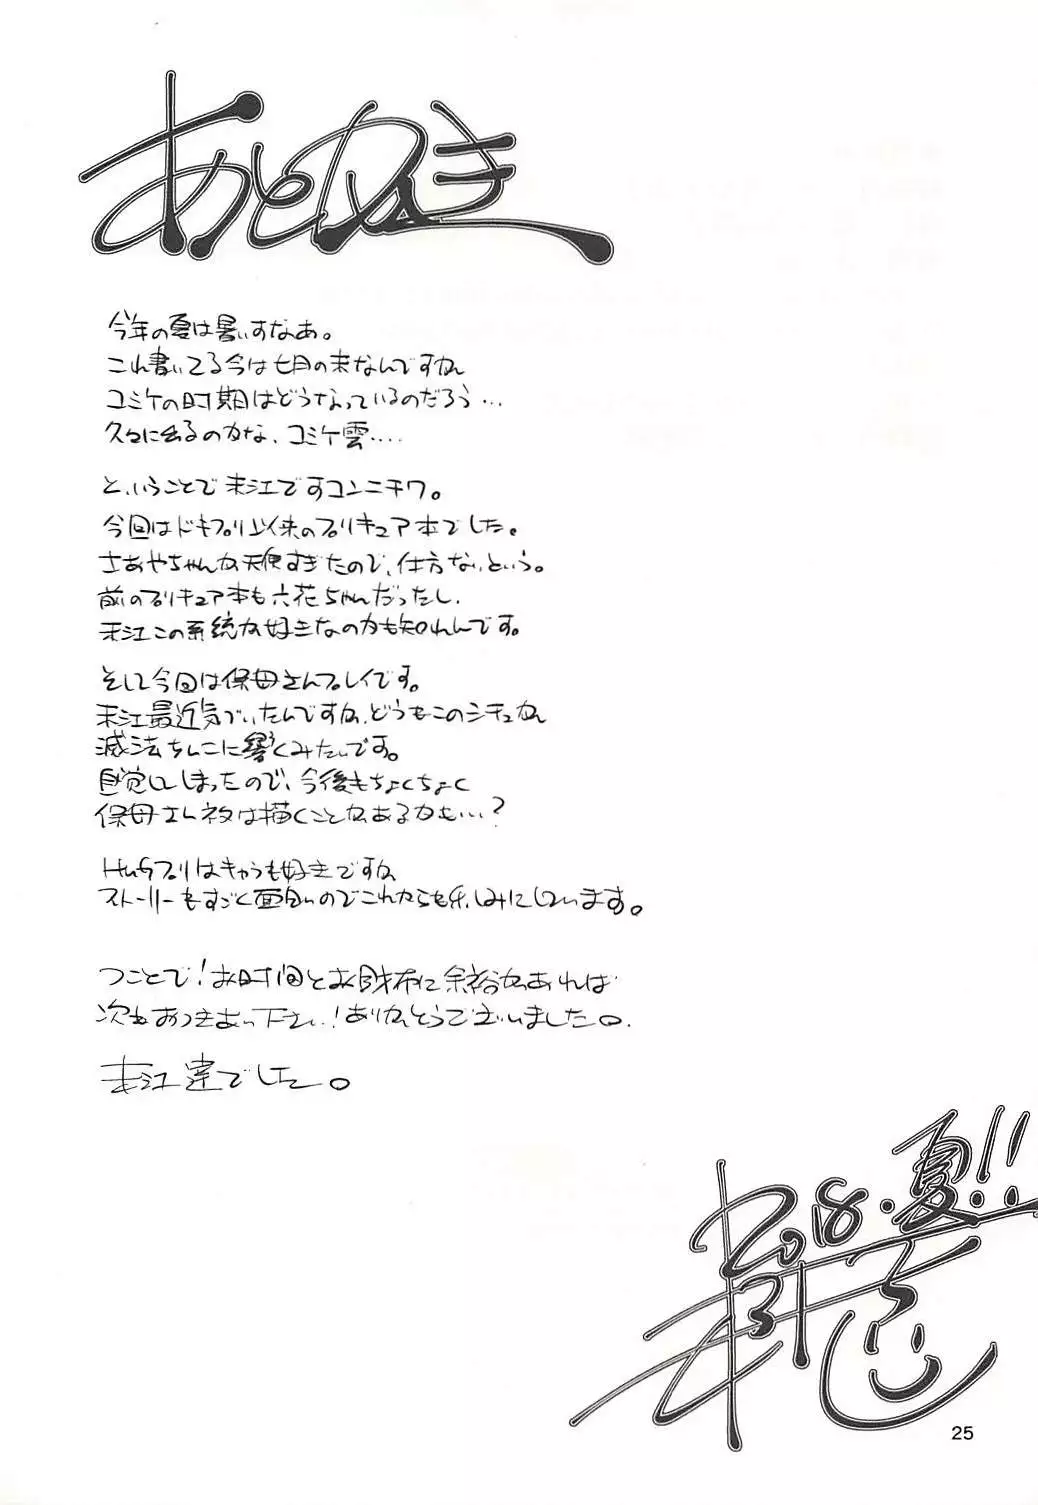 あとがき
今年の夏は暑いすなあ。
これ書いてる今は七月の末なんですがね
コミケの時期はどうなっているのだろう…
久々に出るのかな、コミケ雲‥‥
と、いうことで末江ですコンニチワ。
今回はドキプリ以来のプリキュア本でした。
さあやちゃんが天使すぎたので、仕方ないという。
前のプリキュア本も六花ちゃんだったし、
末江この系統が好きなのかも知れんです。
そして今回は保母さんプレイです。
末江最近気づいたんですが、どうもこのシチュがね
滅法ちんこに響くみたいです。
自覚してしまったので、今後もちょくちょく
保母さんネタは描くことがあるかも…?
Hugプリはキャラも好きですが
ストーリーもすごく面白いのでこれからも楽しみにしています。
つことで!お時間とお財布に余裕があれば
次もおつきあい下さい!ありがとうございました。
末江達でした。
2018・夏!!
25